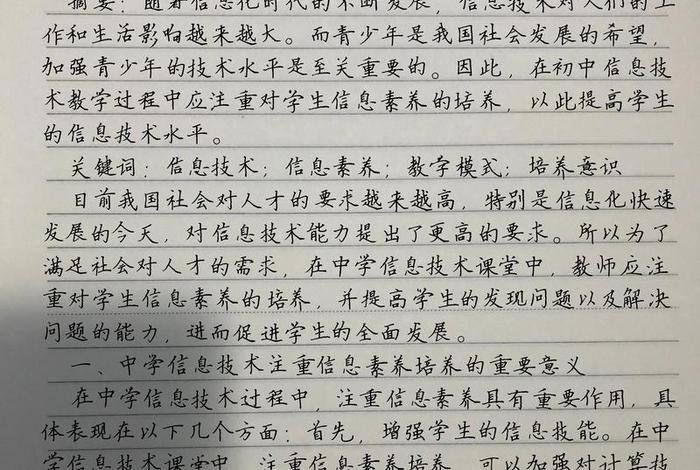 摘要：随着信息化时代的不断发展，信息技术对人们的工
作和生活影响越来越大。而青少年是我国社会发展的希望，
加强青少年的技术水平是至关重要的。因此，在初中信息技
术教学过程中应注重对学生信息素养的培养，以此提高学生
的信息技术水平。
关键词：信息技术；信息素养；教学模式；培养意识
目前我国社会对人才的要求越来越高，特别是信息化快速
发展的今天，对信息技术能力提出了更高的要求。所以为了
满足社会对人才的需求，在中学信息技术课堂中，教师应注
重对学生信息素养的培养，并提高学生的发现问题以及解决
问题的能力，进而促进学生的全面发展。
一、中学信息技术注重信息素养培养的重要意义
在中学信息技术过程中，注重信息素养具有重要作用，具
体表现在以下几个方面：首先，增强学生的信息技能。在中
学信息技术课堂中，注重信息素养培养，可以加强对计算技